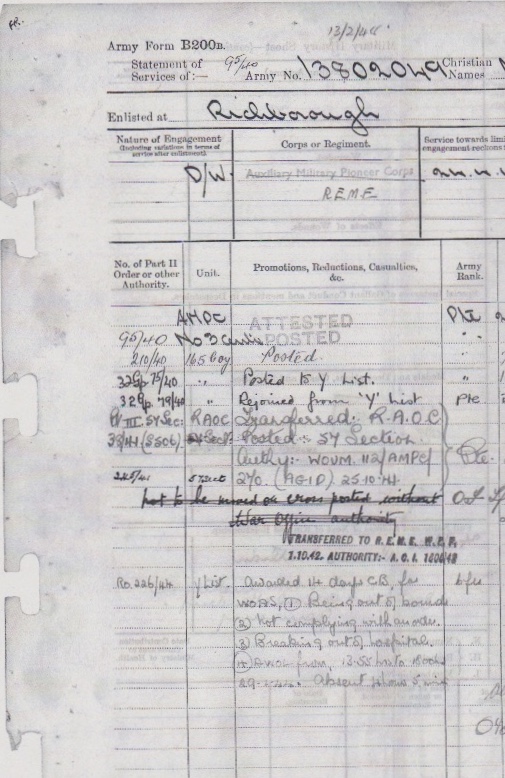 13/2/44
Army Form B200B.
Statement of
Services of:—
95/40
Army No. 13802049
Christian
Names
Enlisted at Richborough
Nature of Engagement
(Including variations in terms of
service after enlistment)
Corps or Regiment.
Service towards limi
engagement reckons f
D/W.
Auxiliary Military Pioneer Corps
REME
No. of Part II
Order or other
Authority.
Unit.
Promotions, Reductions, Casualties,
&c.
Army
Rank.
AMPC ATTESTED Pte
95/40 No 3 POSTED
210/40 165 Coy Posted.
32Gp. 75/40 " Posted to Y List.
32Gp. 79/40 " Rejoined from 'Y' List Pte
RAOC Transferred: R.A.O.C
Posted:- 57 Section. Pte.
Authy:- WOUM. 112/AMPC/
270. (AG1D) 25.10.41.
not to be moved or cross posted without
War Office authority
TRANSFERRED TO R.E.M.E. W.E.F.
1.10.42. AUTHORITY:- A.C.I.
Ro. 226/44 Y List. Awarded 14 days CB. for
WOAS, ① Being out of bounds
② Not complying with an order.
③ Breaking out of hospital.
④ AWOL from, 13.55 hrs to
Absent 5 min